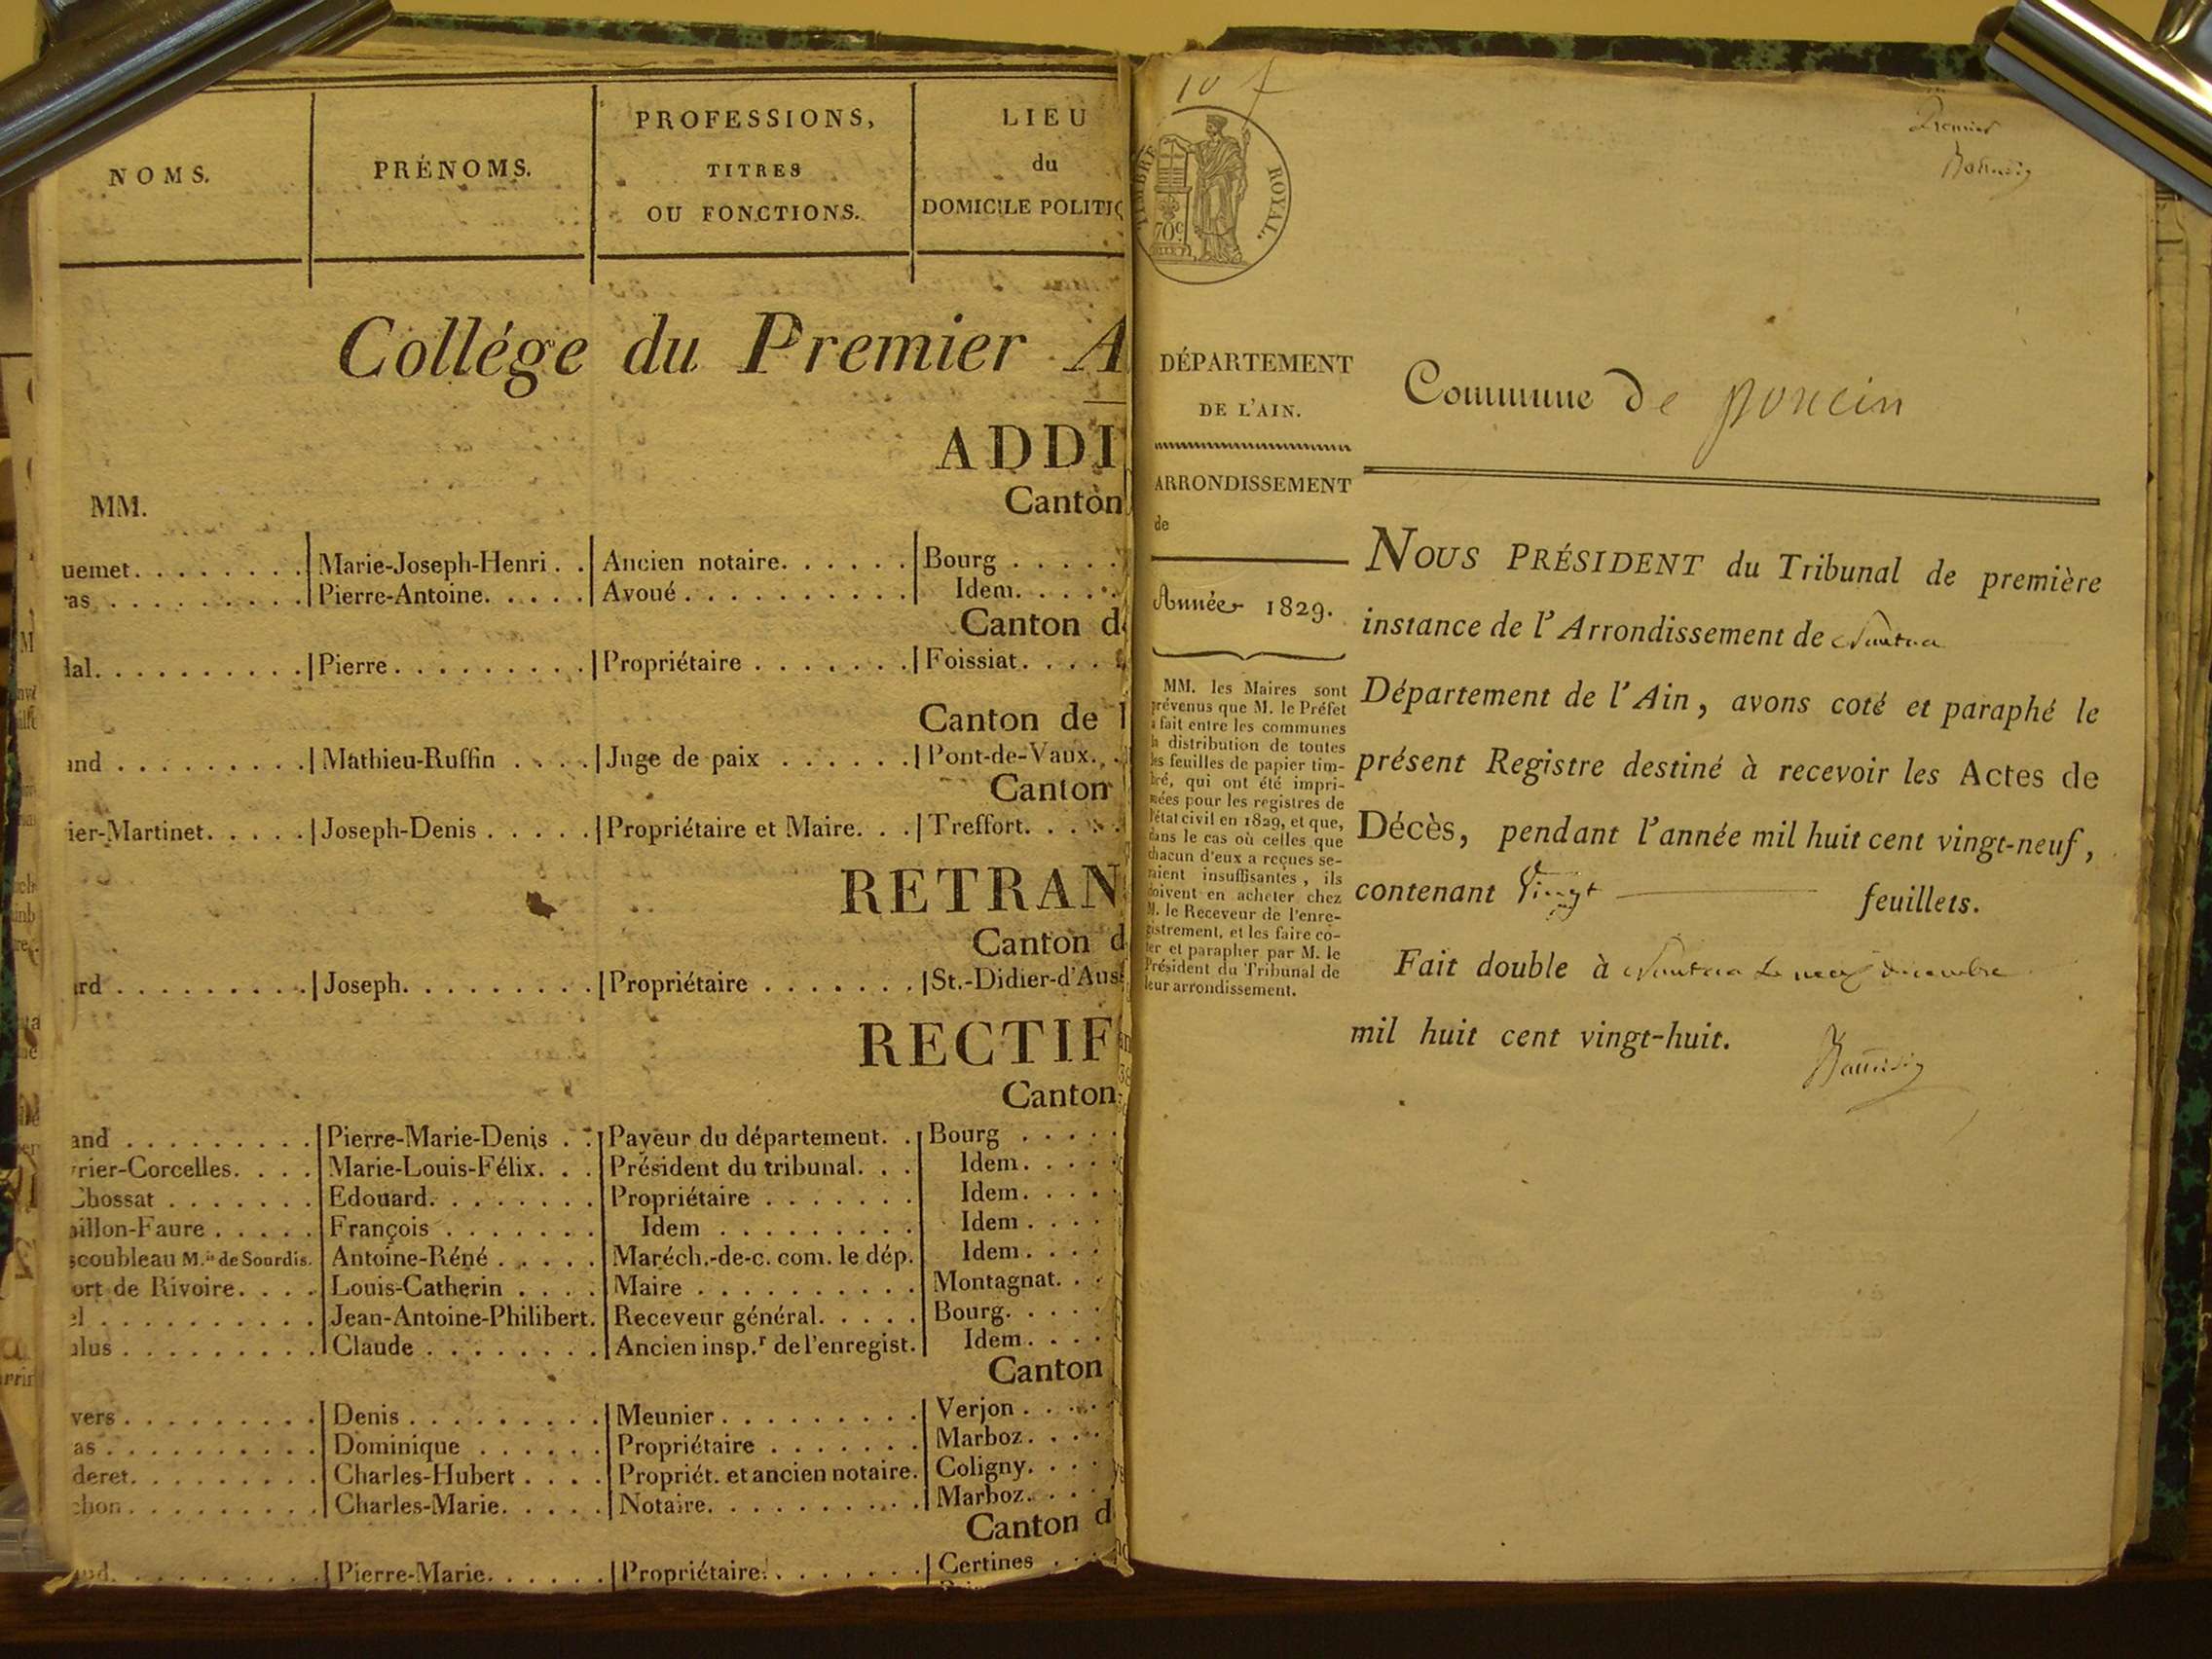 NOMS.
PRÉNOMS.
PROFESSIONS,
TITRES
OU FONCTIONS.
LIEU
du
DOMICILE POLITIQ
Collége du Premier A
ADDI
Canton
MM.
uemet. Marie-Joseph-Henri. Ancien notaire. Bourg
as Pierre-Antoine. Avoué Idem.
Canton d
dal. Pierre. Propriétaire Foissiat.
Canton de
and Mathieu-Ruffin Juge de paix Pont-de-Vaux.
Canton
ier-Martinet. Joseph-Denis Propriétaire et Maire. Treffort.
RETRAN
Canton d
ard Joseph. Propriétaire St.-Didier-d'Aus
RECTIF
Canton
and Pierre-Marie-Denis Payeur du département. Bourg
rier-Corcelles. Marie-Louis-Félix. Président du tribunal. Idem.
Chossat Edouard. Propriétaire Idem.
illon-Faure François Idem Idem
scoubleau M.is de Sourdis. Antoine-Réné Maréch.-de-c. com. le dép. Idem
ort de Rivoire. Louis-Catherin Maire Montagnat.
el Jean-Antoine-Philibert. Receveur général. Bourg.
alus Claude Ancien insp.r de l'enregist. Idem.
Canton
vers Denis Meunier Verjon
as Dominique Propriétaire Marboz.
deret. Charles-Hubert Propriét. et ancien notaire. Coligny.
chon. Charles-Marie. Notaire. Marboz.
Canton d
Pierre-Marie. Propriétaire. Certines
10 f
Premier
TIMBRE ROYAL.
70c
DÉPARTEMENT
DE L'AIN.
Commune De poncin
ARRONDISSEMENT
de
Année 1829.
MM. les Maires sont
prévenus que M. le Préfet
a fait entre les communes
la distribution de toutes
les feuilles de papier tim-
bré, qui ont été impri-
mées pour les registres de
l'état civil en 1829, et que,
dans le cas où celles que
chacun d'eux a reçues se-
raient insuffisantes, ils
doivent en acheter chez
M. le Receveur de l'enre-
gistrement, et les faire co-
ter et parapher par M. le
Président du Tribunal de
leur arrondissement.
NOUS PRÉSIDENT du Tribunal de première
instance de l'Arrondissement de Nantua
Département de l'Ain, avons coté et paraphé le
présent Registre destiné à recevoir les Actes de
Décès, pendant l'année mil huit cent vingt-neuf,
contenant Vingt feuillets.
Fait double à Nantua Le neuf décembre
mil huit cent vingt-huit.